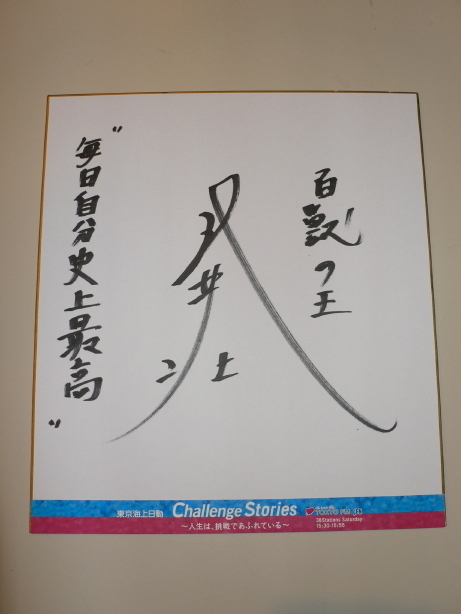 百獣の王
武井壮
〝毎日自分史上最高〟
東京海上日動 Challenge Stories
～人生は、挑戦であふれている～
TOKYO FM
38Stations Saturday